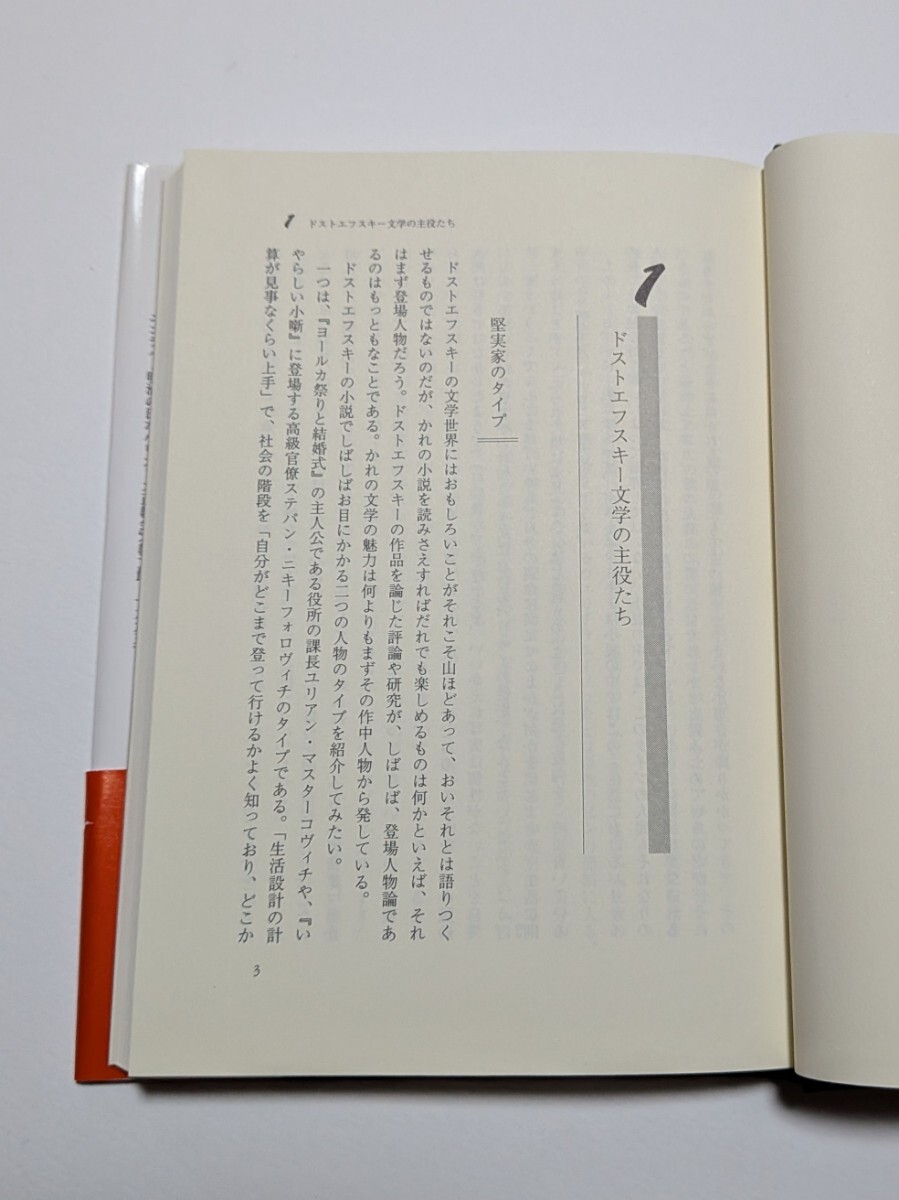 1 ドストエフスキー文学の主役たち
1
ドストエフスキー文学の主役たち
堅実家のタイプ
ドストエフスキーの文学世界にはおもしろいことがそれこそ山ほどあって、おいそれとは語りつく
せるものではないのだが、かれの小説を読みさえすればだれでも楽しめるものは何かといえば、それ
はまず登場人物だろう。ドストエフスキーの作品を論じた評論や研究が、しばしば、登場人物論であ
るのはもっともなことである。かれの文学の魅力は何よりもまずその作中人物から発している。
ドストエフスキーの小説でしばしばお目にかかる二つの人物のタイプを紹介してみたい。
一つは、『ヨールカ祭りと結婚式』の主人公である役所の課長ユリアン・マスターコヴィチや、『い
やらしい小噺』に登場する高級官僚ステパン・ニキーフォロヴィチのタイプである。「生活設計の計
算が見事なくらい上手」で、社会の階段を「自分がどこまで登って行けるかよく知っており、どこか
3